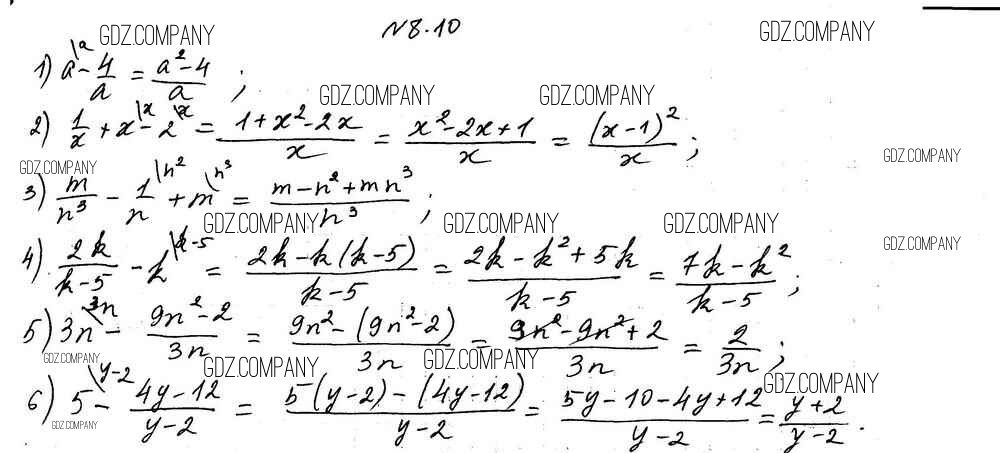 N 8.10
GDZ.COMPANY GDZ.COMPANY
1) a^{\a} - 4/a = (a² - 4)/a ;
GDZ.COMPANY GDZ.COMPANY
2) 1/x + x^{\x} - 2^{\x} = (1 + x² - 2x)/x = (x² - 2x + 1)/x = (x - 1)²/x ;
GDZ.COMPANY GDZ.COMPANY
3) m/n³ - 1/n^{\n²} + m^{\n³} = (m - n² + mn³)/n³ ;
GDZ.COMPANY GDZ.COMPANY GDZ.COMPANY
4) 2k/(k - 5) - k^{\k-5} = (2k - k(k - 5))/(k - 5) = (2k - k² + 5k)/(k - 5) = (7k - k²)/(k - 5) ;
GDZ.COMPANY
5) 3n^{\3n} - (9n² - 2)/3n = (9n² - (9n² - 2))/3n = (9n² - 9n² + 2)/3n = 2/3n ;
GDZ.COMPANY GDZ.COMPANY GDZ.COMPANY
6) 5^{\y-2} - (4y - 12)/(y - 2) = (5(y - 2) - (4y - 12))/(y - 2) = (5y - 10 - 4y + 12)/(y - 2) = (y + 2)/(y - 2) .
GDZ.COMPANY GDZ.COMPANY